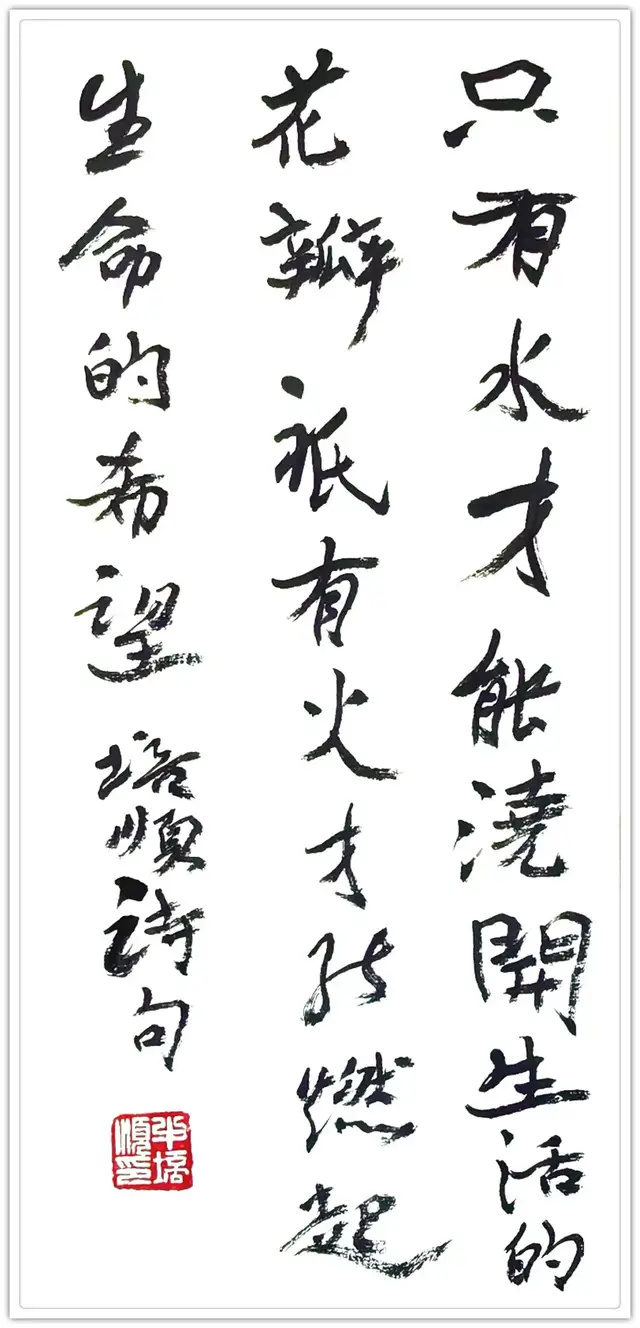 只有水才能澆開生活的
花瓣祇有火才能燃起
生命的希望
培順詩句
牛培順印